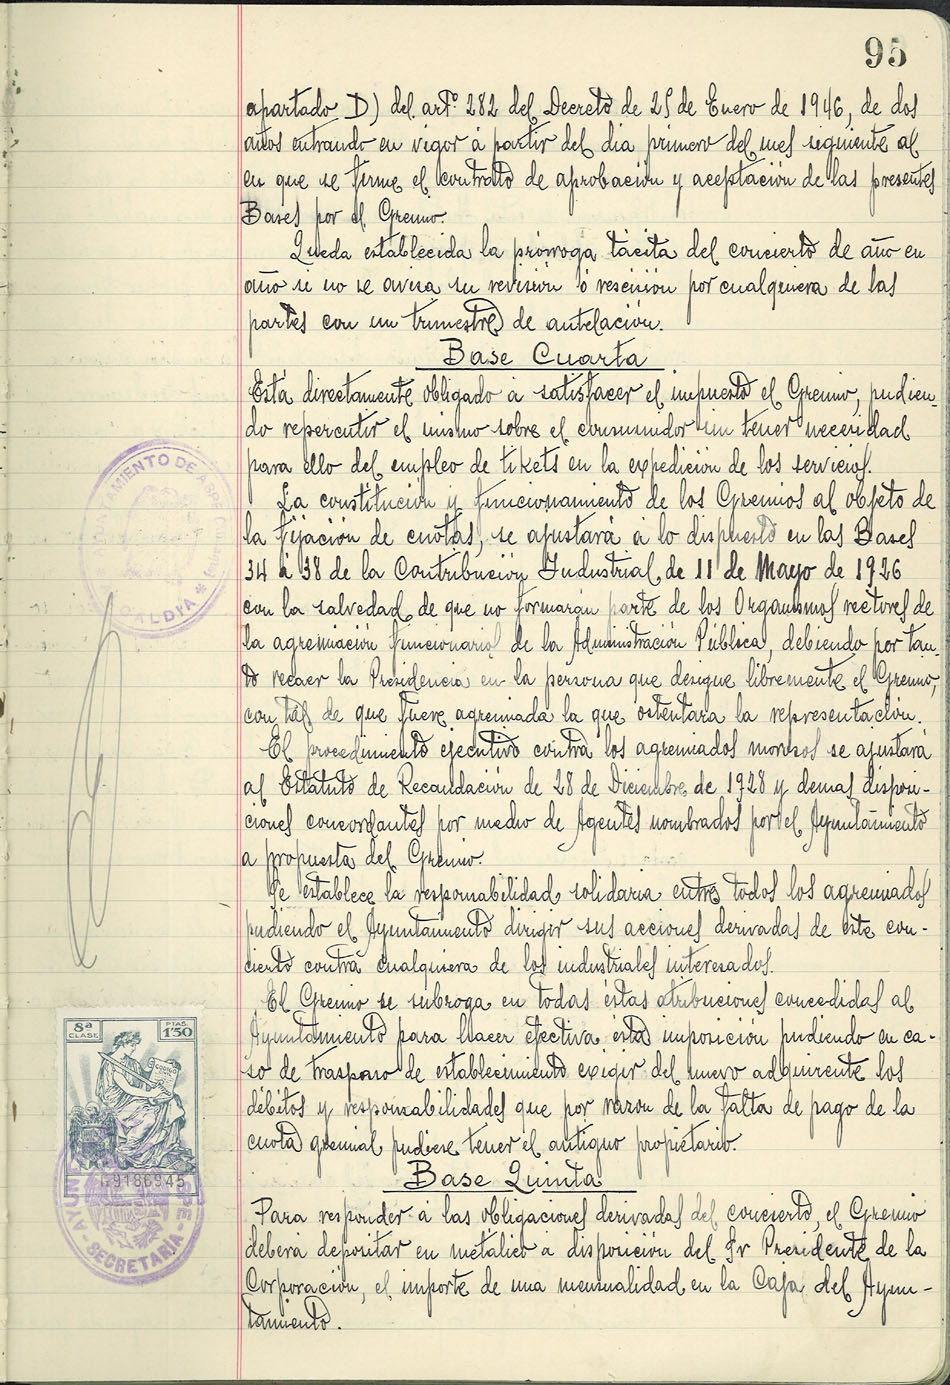 95
apartado D) del artº 282 del Decreto de 25 de Enero de 1946, de dos
años entrando en vigor á partir del dia primero del mes siguiente al
en que se firme el contrato de aprobación y aceptación de las presentes
Bases por el Gremio.
Queda establecida la prórroga tácita del concierto de año en
año si no se avisa su revisión ó rescisión por cualquiera de las
partes con un trimestre de antelación.
Base Cuarta
Está directamente obligado á satisfacer el impuesto el Gremio, pudien-
do repercutir el mismo sobre el consumidor sin tener necesidad
para ello del empleo de tikets en la expedición de los servicios.
La constitución y funcionamiento de los Gremios al objeto de
la fijación de cuotas, se ajustará á lo dispuesto en las Bases
34 á 38 de la Contribución Industrial de 11 de Mayo de 1926
con la salvedad de que no formarán parte de los Organismos rectores de
la agremiación funcionarios de la Administración Pública, debiendo por tan-
to recaer la Presidencia en la persona que designe libremente el Gremio,
con tal de que fuere agremiada la que ostentara la representación.
El procedimiento ejecutivo contra los agremiados morosos se ajustará
al Estatuto de Recaudación de 28 de Diciembre de 1928 y demas disposi-
ciones concordantes por medio de Agentes nombrados por el Ayuntamiento
a propuesta del Gremio.
Se establece la responsabilidad solidaria entre todos los agremiados
pudiendo el Ayuntamiento dirigir sus acciones derivadas de este con-
cierto contra cualquiera de los industriales interesados.
El Gremio se subroga en todas éstas atribuciones concedidas al
Ayuntamiento para hacer efectiva ésta imposición pudiendo en ca-
so de traspaso de establecimiento exigir del nuevo adquirente los
débitos y responsabilidades que por razon de la falta de pago de la
cuota gremial pudiese tener el antiguo propietario.
Base Quinta
Para responder á las obligaciones derivadas del concierto, el Gremio
deberá depositar en metálico a disposición del Sr Presidente de la
Corporación, el importe de una mensualidad en la Caja del Ayun-
tamiento.
AYUNTAMIENTO DE ASPE
ALCALDIA
8ª CLASE
PTAS. 1'50
9186945
SECRETARIA